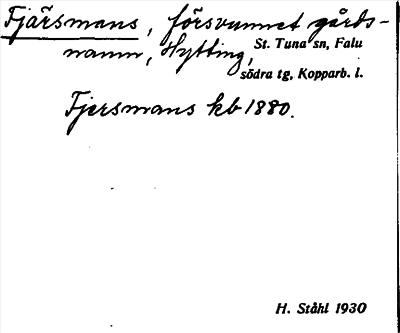 Fjärsmans, försvunnet gårds-
namn, Hytting,
St. Tuna sn, Falu
södra tg, Kopparb. l.
Fjersmans kb 1880.
H. Ståhl 1930